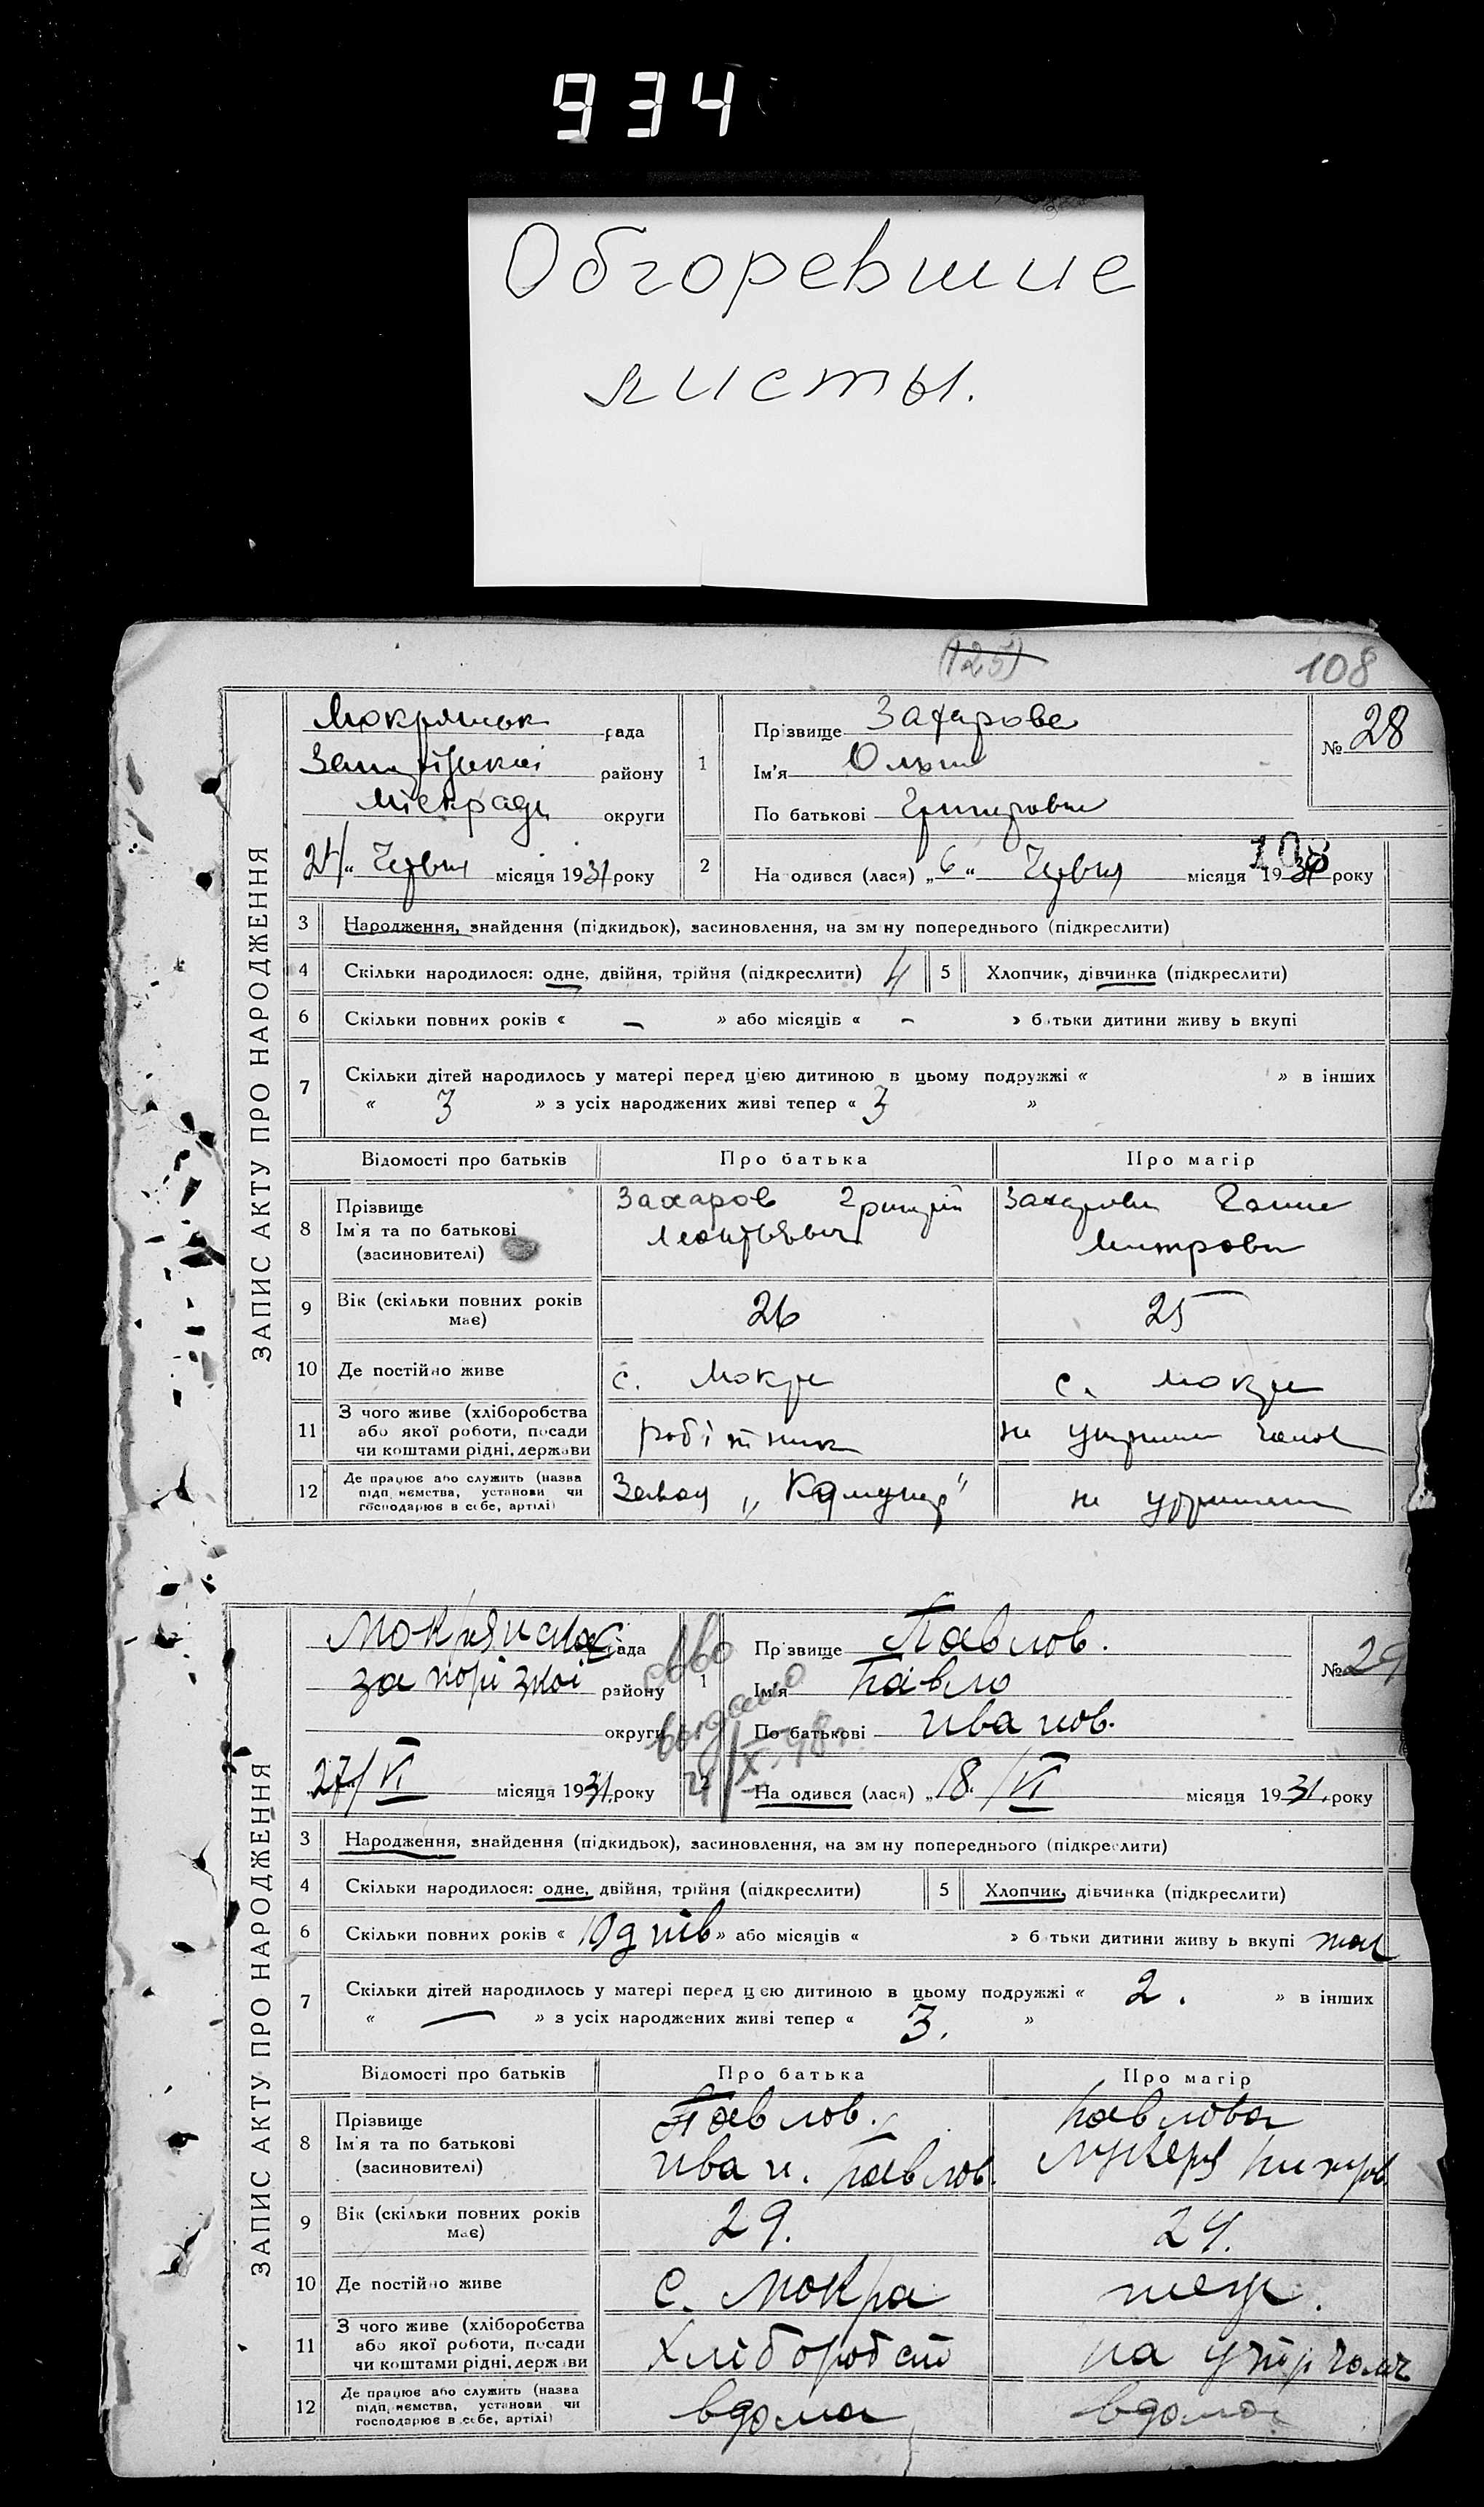 934
Обгоревшие
листы.
(125)
108
ЗАПИС АКТУ ПРО НАРОДЖЕННЯ
рада
району
округи
місяця 1931 року
1
Прізвище Захарова
Ім'я
По батькові
№ 28
108
2
На одився (лася) „6“ Червня місяця 1931 року
3 Народження, знайдення (підкидьок), засиновлення, на зм ну попереднього (підкреслити)
4 Скільки народилося: одне, двійня, трійня (підкреслити) 4
5 Хлопчик, дівчинка (підкреслити)
6 Скільки повних років « – » або місяців « – » б тьки дитини живу ь вкупі
7 Скільки дітей народилось у матері перед цією дитиною в цьому подружжі « » в інших
« 3 » з усіх народжених живі тепер « 3 »
Відомості про батьків Про батька Про матір
8 Прізвище
Ім'я та по батькові
(засиновителі)
Захаров Григорій
Леонтьевич
9 Вік (скільки повних років
має)
26
25
10 Де постійно живе
с. Мокра
с. Мокра
11 З чого живе (хліборобства
або якої роботи, посади
чи коштами рідні, держави
робітник
12 Де працює або служить (назва
підп иємства, установи чи
господарює в себе, артілі)
Завод „Комунар“
ЗАПИС АКТУ ПРО НАРОДЖЕННЯ
рада
району
округи
27/VI місяця 1931 року
1
Пр звище Павлов.
Ім'я Павло
По батькові Иванов.
№ 29
На одився (лася) „18“/VI місяця 1931. року
3 Народження, знайдення (підкидьок), засиновлення, на зм ну попереднього (підкреслити)
4 Скільки народилося: одне, двійня, трійня (підкреслити)
5 Хлопчик, дівчинка (підкреслити)
6 Скільки повних років « 10 днів » або місяців « » б тьки дитини живу ь вкупі
7 Скільки дітей народилось у матері перед ц єю дитиною в цьому подружжі « 2. » в інших
« — » з усіх народжених живі тепер « 3. »
Відомості про батьків Про батька Про матір
8 Прізвище
Ім'я та по батькові
(засиновителі)
Павлов.
Иван. Павлов.
Павлова
Лукеря
9 Вік (скільки повних років
має)
29.
24.
10 Де постійно живе
с. Мокра
11 З чого живе (хліборобства
або якої роботи, посади
чи коштами рідні, держ ви
на
12 Де працює або служить (назва
підп иємства, установи чи
господарює в себе, артілі)
вдома
вдома